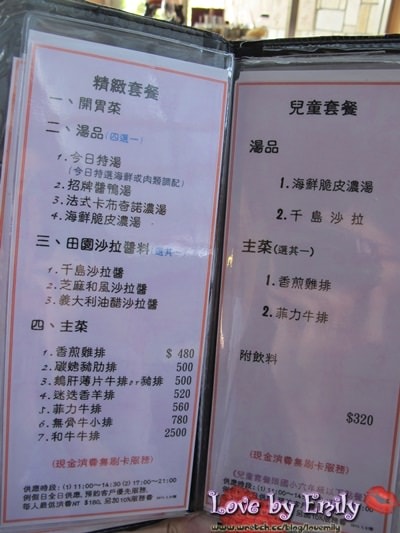 精緻套餐
一、開胃菜
二、湯品(四選一)
1.今日特湯
(今日特選海鮮或肉類調配)
2.招牌醬鴨湯
3.法式卡布奇諾濃湯
4.海鮮脆皮濃湯
三、田園沙拉醬料(選其一)
1.千島沙拉醬
2.芝麻和風沙拉醬
3.義大利油醋沙拉醬
四、主菜
1.香煎雞排 $480
2.碳烤豬肋排 500
3.鵝肝薄片牛排or豬排 500
4.迷迭香羊排 520
5.菲力牛排 560
6.無骨牛小排 780
7.和牛牛排 2500
(現金消費無刷卡服務)
供應時段:(1)11:00~14:30(2)17:00~21:00
例假日全日供應,預約客戶優先服務.
每人最低消費NT$180,另加10%服務費
兒童套餐
湯品
1.海鮮脆皮濃湯
2.千島沙拉
主菜(選其一)
1.香煎雞排
2.菲力牛排
附飲料
$320
(現金消費無刷卡服務)
Love by Emily
www.wretch.cc/blog/lovemily